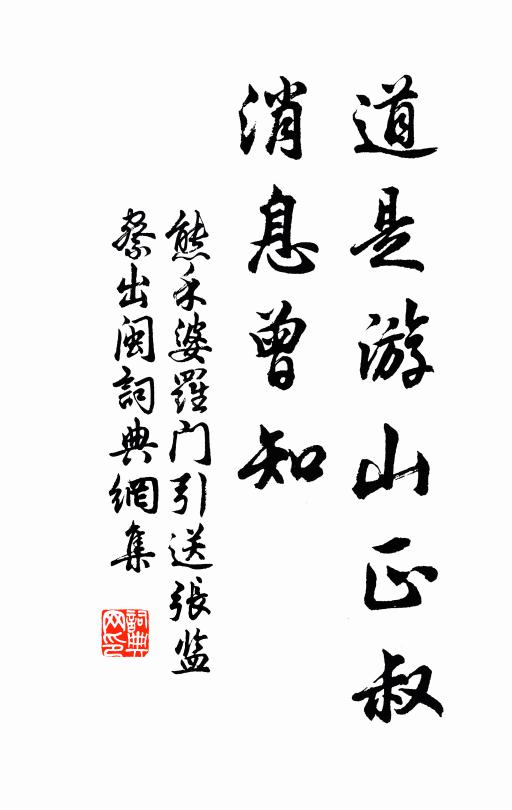 道是游山正叔
消息曾知
熊禾婆羅门引送張监
察出闽詞典網集
詞典
网印